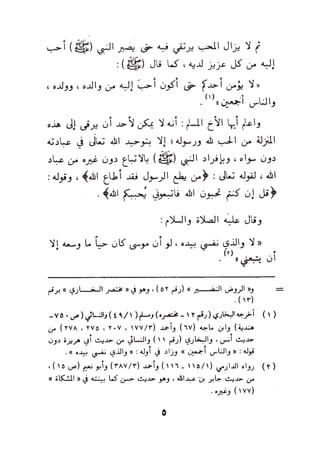 ثم لا يزال المحب يرتقي فيه حتى يصير النبي (ﷺ) أحب
إليه من كل عزيز لديه ، كما قال (ﷺ) :
« لا يؤمن أحدكم حتى أكون أحب إليه من والده ، وولده ،
والناس أجمعين » (١) .
واعلم أيها الأخ المسلم : أنه لا يمكن لأحد أن يرقى إلى هذه
المنزلة من الحب لله ورسوله ؛ إلا بتوحيد الله تعالى في عبادته
دون سواه ، وبإفراد النبي (ﷺ) بالاتباع دون غيره من عباد
الله ، لقوله تعالى : ﴿من يطع الرسول فقد أطاع الله﴾ ، وقوله :
﴿قل إن كنتم تحبون الله فاتبعوني يُحببكم الله﴾ .
وقال عليه الصلاة والسلام :
« لا والذي نفسي بيده ، لو أن موسى كان حياً ما وسعه إلا
أن يتبعني » (٢) .
= و« الروض النضير » (رقم ٥٢) ، وهو في « مختصر البخاري » برقم
(١٣) .
(١) أخرجه البخاري (رقم ١٢ - مختصره) ومسلم (٤٩/١) والنسائي (ص ٧٥٠ -
هندية) وابن ماجه (٦٧) وأحمد (١٧٧/٣ ، ٢٠٧ ، ٢٧٥ ، ٢٧٨) من
حديث أنس ، والبخاري (رقم ١١) والنسائي من حديث أبي هريرة دون
قوله : « والناس أجمعين » وزاد في أوله : « والذي نفسي بيده » .
(٢) رواه الدارمي (١١٥/١ - ١١٦) وأحمد (٣٨٧/٣) وأبو نعيم (ص ١٥) ،
من حديث جابر بن عبدالله ، وهو حديث حسن كما بينته في « المشكاة »
(١٧٧) وغيره .
٥